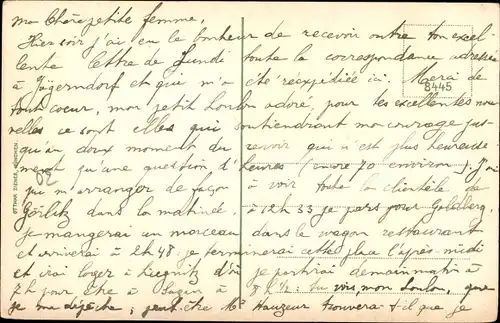 ma Chère petite femme,
Hier soir j'ai eu le bonheur de recevoir outre ton excel-
lente lettre de Lundi toute la correspondance adressée
à Jägerndorf et qui m'a été réexpédiée ici. Merci de
tout coeur, mon petit Loulou adoré, pour tes excellentes nou-
velles ce sont elles qui soutiendront mon courage jus-
qu'au doux moment du revoir qui n'est plus heureuse-
ment qu'une question d'heures (encore 70 environ). J'ai
pu m'arranger de façon à voir toute la clientèle de
Görlitz dans la matinée. à 12h 33 je pars pour Goldberg,
je mangerai un morceau dans le wagon restaurant
et arriverai à 2h 48 je terminerai cette place l'après-midi
et irai loger à Liegnitz d'où je partirai demain matin à
7h pour être à Sagan à 8h ½: Tu vois, mon Loulou, que
je me dépêche; peut-être Mr Hauzeur trouvera-t-il que je
8445
OTTMAR ZIEHER, MÜNCHEN